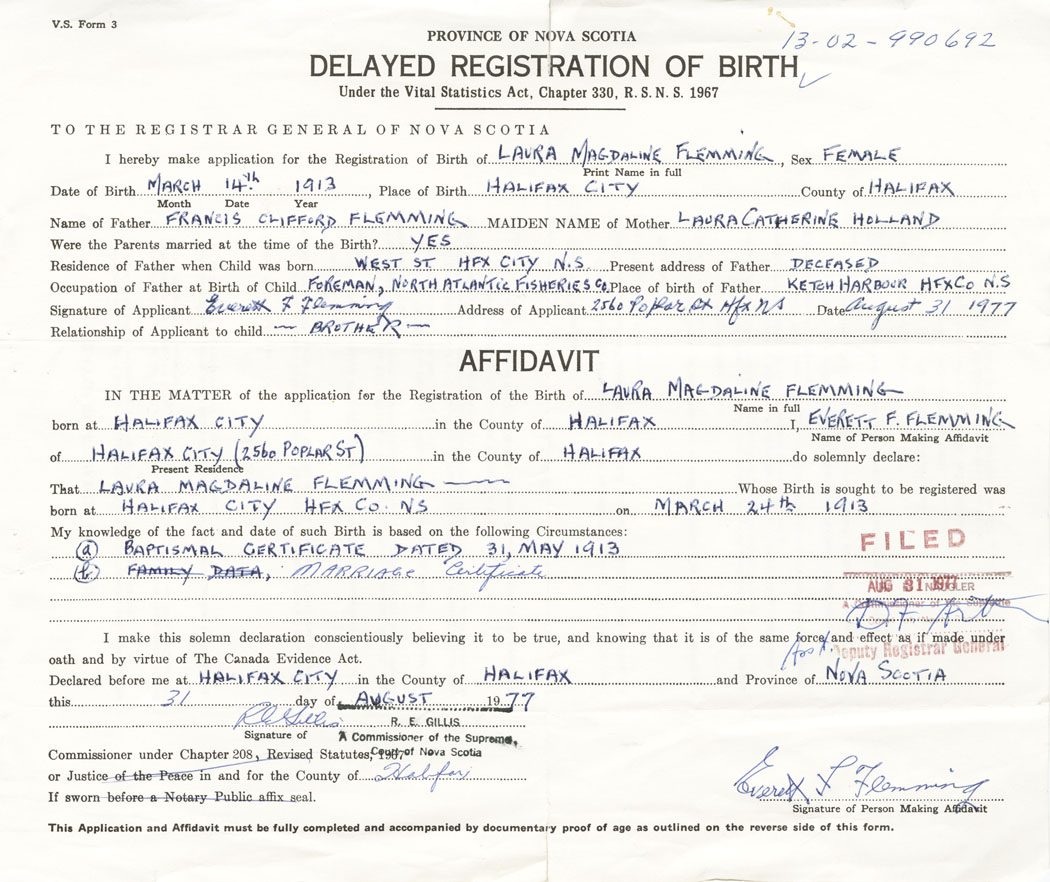 V.S. Form 3
13-02-990692
PROVINCE OF NOVA SCOTIA
DELAYED REGISTRATION OF BIRTH
Under the Vital Statistics Act, Chapter 330, R. S. N. S. 1967
TO THE REGISTRAR GENERAL OF NOVA SCOTIA
I hereby make application for the Registration of Birth of LAURA MAGDALINE FLEMMING, Sex FEMALE
Print Name in full
Date of Birth MARCH 14th 1913, Place of Birth HALIFAX CITY County of HALIFAX
Month Date Year
Name of Father FRANCIS CLIFFORD FLEMMING MAIDEN NAME of Mother LAURA CATHERINE HOLLAND
Were the Parents married at the time of the Birth? YES
Residence of Father when Child was born WEST ST. HFX CITY N.S. Present address of Father DECEASED
Occupation of Father at Birth of Child FOREMAN, NORTH ATLANTIC FISHERIES Co. Place of birth of Father KETCH HARBOUR HFX Co N.S
Signature of Applicant Everett F Flemming Address of Applicant 2560 Poplar St Hfx NS Date August 31 1977
Relationship of Applicant to child — BROTHER —
AFFIDAVIT
IN THE MATTER of the application for the Registration of the Birth of LAURA MAGDALINE FLEMMING
Name in full
born at HALIFAX CITY in the County of HALIFAX I, EVERETT F. FLEMMING
Name of Person Making Affidavit
of HALIFAX CITY (2560 POPLAR ST) in the County of HALIFAX do solemnly declare:
Present Residence
That LAURA MAGDALINE FLEMMING Whose Birth is sought to be registered was
born at HALIFAX CITY HFX Co. NS on MARCH 24th 1913
My knowledge of the fact and date of such Birth is based on the following Circumstances:
(a) BAPTISMAL CERTIFICATE DATED 31, MAY 1913
(b) FAMILY DATA, MARRIAGE Certificate
FILED
AUG 31 1977
A Commissioner of the Supreme
I make this solemn declaration conscientiously believing it to be true, and knowing that it is of the same force and effect as if made under
oath and by virtue of The Canada Evidence Act.
Deputy Registrar General
Declared before me at HALIFAX CITY in the County of HALIFAX and Province of NOVA SCOTIA
this 31 day of AUGUST 1977
R. E. GILLIS
Signature of A Commissioner of the Supreme
Court of Nova Scotia
Commissioner under Chapter 208, Revised Statutes, 1967
or Justice of the Peace in and for the County of Halifax
Everett F Flemming
If sworn before a Notary Public affix seal.
Signature of Person Making Affidavit
This Application and Affidavit must be fully completed and accompanied by documentary proof of age as outlined on the reverse side of this form.